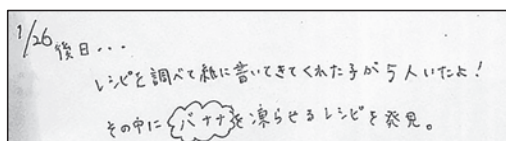 1/26 後日・・・
レシピを調べて紙に書いてきてくれた子が5人いたよ！
その中にバナナを凍らせるレシピを発見。